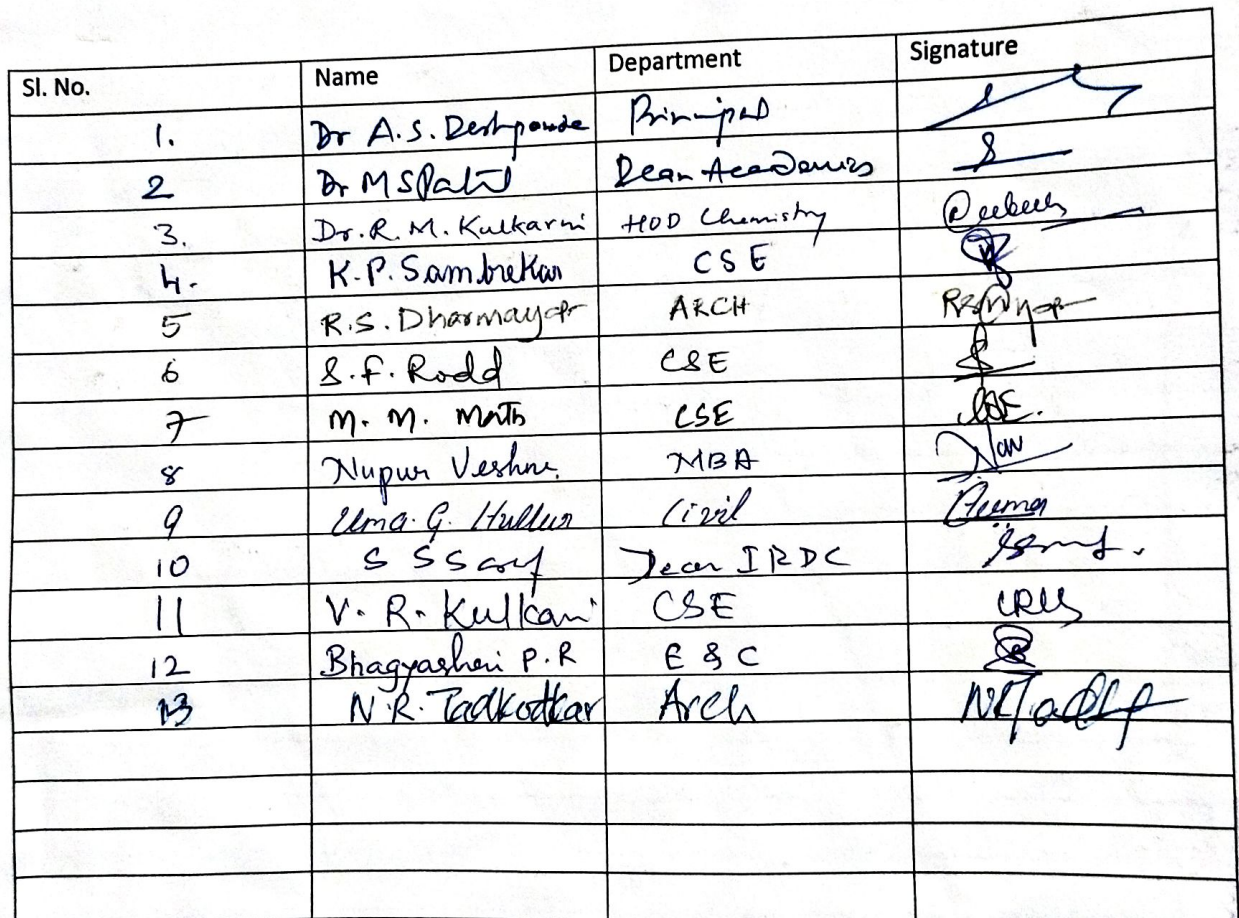 Sl. No. Name Department Signature
1. Dr A.S. Deshpande Principal
2 Dr M S Patil Dean Academics
3. Dr. R. M. Kulkarni HOD Chemistry
4. K.P. Sambrekar CSE
5 R.S. Dharmayat ARCH
6 S.F. Rodd CSE
7 M. M. Math CSE
8 Nupur Veshne MBA
9 Uma. G. Hullur Civil
10 S S Saraf Dean IRDC
11 V. R. Kulkani CSE
12 Bhagyashri P.R E & C
13 N.R. Tadkodkar Arch